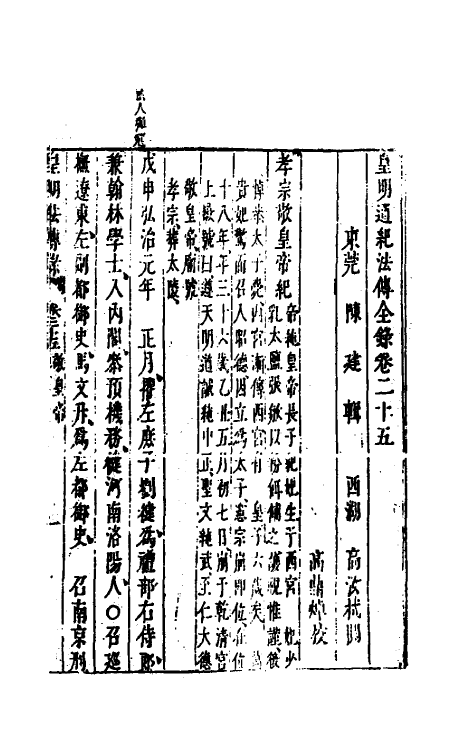 皇明通紀法傳全錄卷二十五
東莞 陳建輯 西湖 高汝栻閱
高鼎焯校
孝宗敬皇帝紀
帝純皇帝長子紀妃生于西宮
乳太監張敏以粉餌餔之護視惟謹後
悼恭太子薨西宮漸傳西宮有 皇子六歲矣
貴妃驚而召入昭德因立為太子憲宗崩即位在位
十八年年三十六歲乙丑五月初七日崩于乾清宮
上徽號曰達天明道誠純中正聖文神武至仁大德
敬皇帝廟號
孝宗葬太陵
戊申弘治元年 正月擢左庶子劉健為禮部右侍郎
兼翰林學士入內閣參預機務健河南洛陽人○召巡
撫遼東左副都御史馬文升為左都御史 召南京刑
皇明法傳錄 卷二十五敬皇帝 一